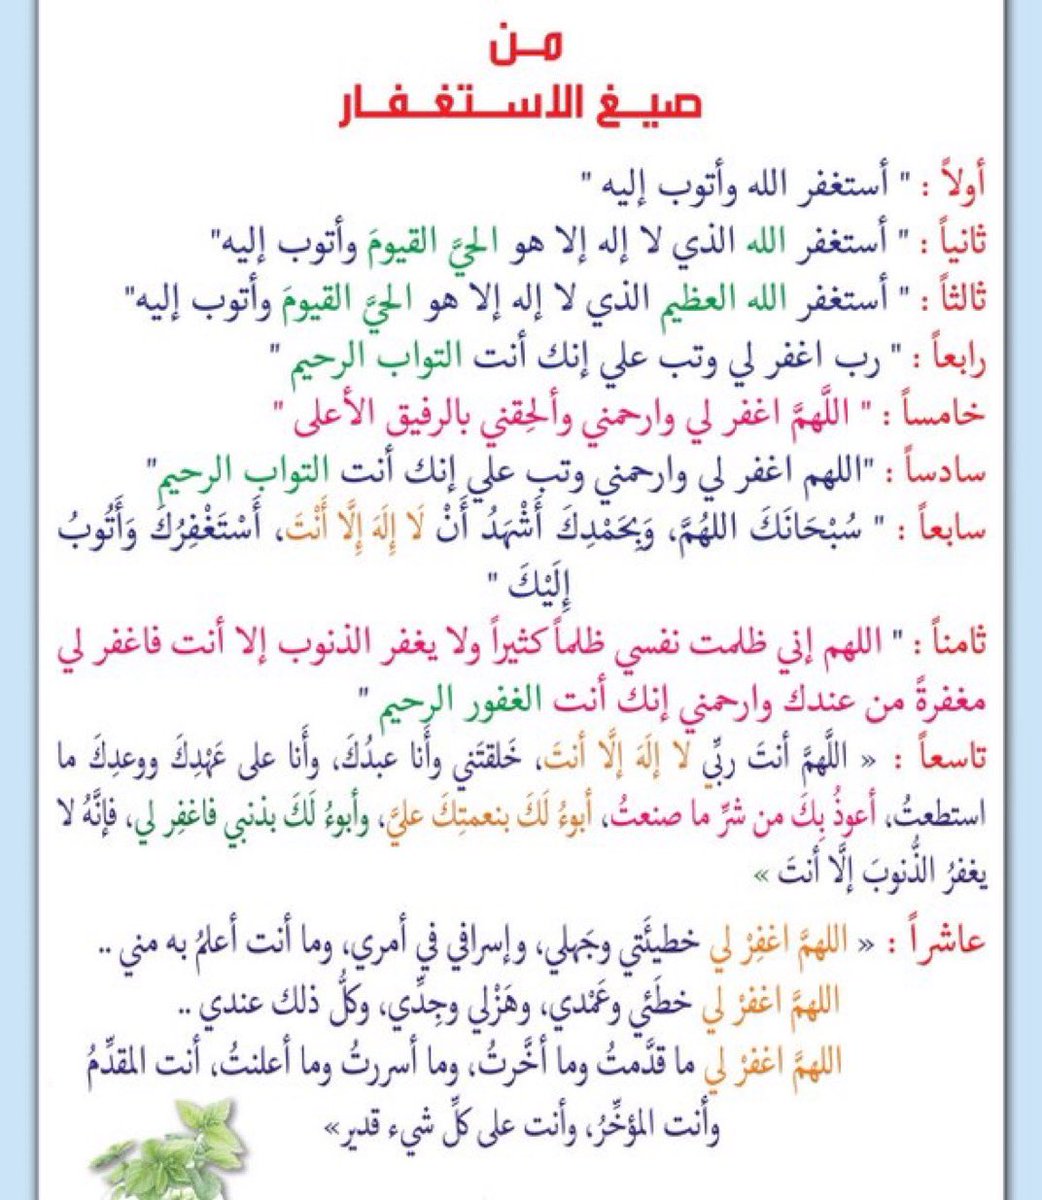 من
صيغ الاستغفار
أولاً : " أستغفر الله وأتوب إليه "
ثانياً : " أستغفر الله الذي لا إله إلا هو الحيَّ القيومَ وأتوب إليه"
ثالثاً : " أستغفر الله العظيم الذي لا إله إلا هو الحيَّ القيومَ وأتوب إليه"
رابعاً : " رب اغفر لي وتب علي إنك أنت التواب الرحيم "
خامساً : " اللَّهمَّ اغفر لي وارحمني وألحِقني بالرفيق الأعلى "
سادساً : "اللهم اغفر لي وارحمني وتب علي إنك أنت التواب الرحيم"
سابعاً : " سُبْحَانَكَ اللهُمَّ، وَبِحَمْدِكَ أَشْهَدُ أَنْ لَا إِلَهَ إِلَّا أَنْتَ، أَسْتَغْفِرُكَ وَأَتُوبُ
إِلَيْكَ "
ثامناً : " اللهم إني ظلمت نفسي ظلماً كثيراً ولا يغفر الذنوب إلا أنت فاغفر لي
مغفرةً من عندك وارحمني إنك أنت الغفور الرحيم "
تاسعاً : « اللَّهمَّ أنتَ ربِّي لا إلَهَ إلَّا أنتَ، خَلقتَني وأَنا عبدُكَ، وأَنا على عَهْدِكَ ووعدِكَ ما
استطعتُ، أعوذُ بِكَ من شرِّ ما صنعتُ، أبوءُ لَكَ بنعمتِكَ عليَّ، وأبوءُ لَكَ بذنبي فاغفِر لي، فإنَّهُ لا
يغفرُ الذُّنوبَ إلَّا أنتَ »
عاشراً : « اللهمَّ اغفِرْ لي خطيئَتي وجَهلي، وإسرافي في أمري، وما أنت أعلمُ به مني ..
اللهمَّ اغفرْ لي خطَئي وعَمْدي، وهَزْلي وجِدِّي، وكلُّ ذلك عندي ..
اللهمَّ اغفرْ لي ما قدَّمتُ وما أخَّرتُ، وما أسررتُ وما أعلنتُ، أنت المقدِّمُ
وأنت المؤخِّرُ، وأنت على كلِّ شيء قدير»